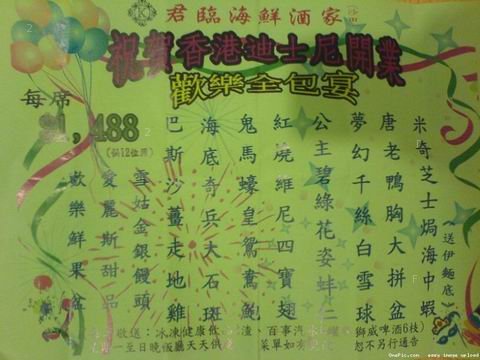 君臨海鮮酒家
祝賀香港迪士尼開業
歡樂全包宴
每席
$1,488
(供12位用)
米奇芝士焗海中蝦
(送伊麵底)
唐老鴨胸大拼盆
夢幻千絲白雪球
公主碧綠花姿蚌仁
紅燒維尼四寶翅
鬼馬蠔皇鴛鴦鮑
海底奇兵大石斑
巴斯沙薑走地雞
雪姑金銀饅頭
愛麗斯甜品
歡樂鮮果盆
敬送：冰凍健康低 渣、百事汽 獅威啤酒6枝)
一至日晚飯廳天天供 菜單如有 恕不另行通告
OnePic.com - easy image upload